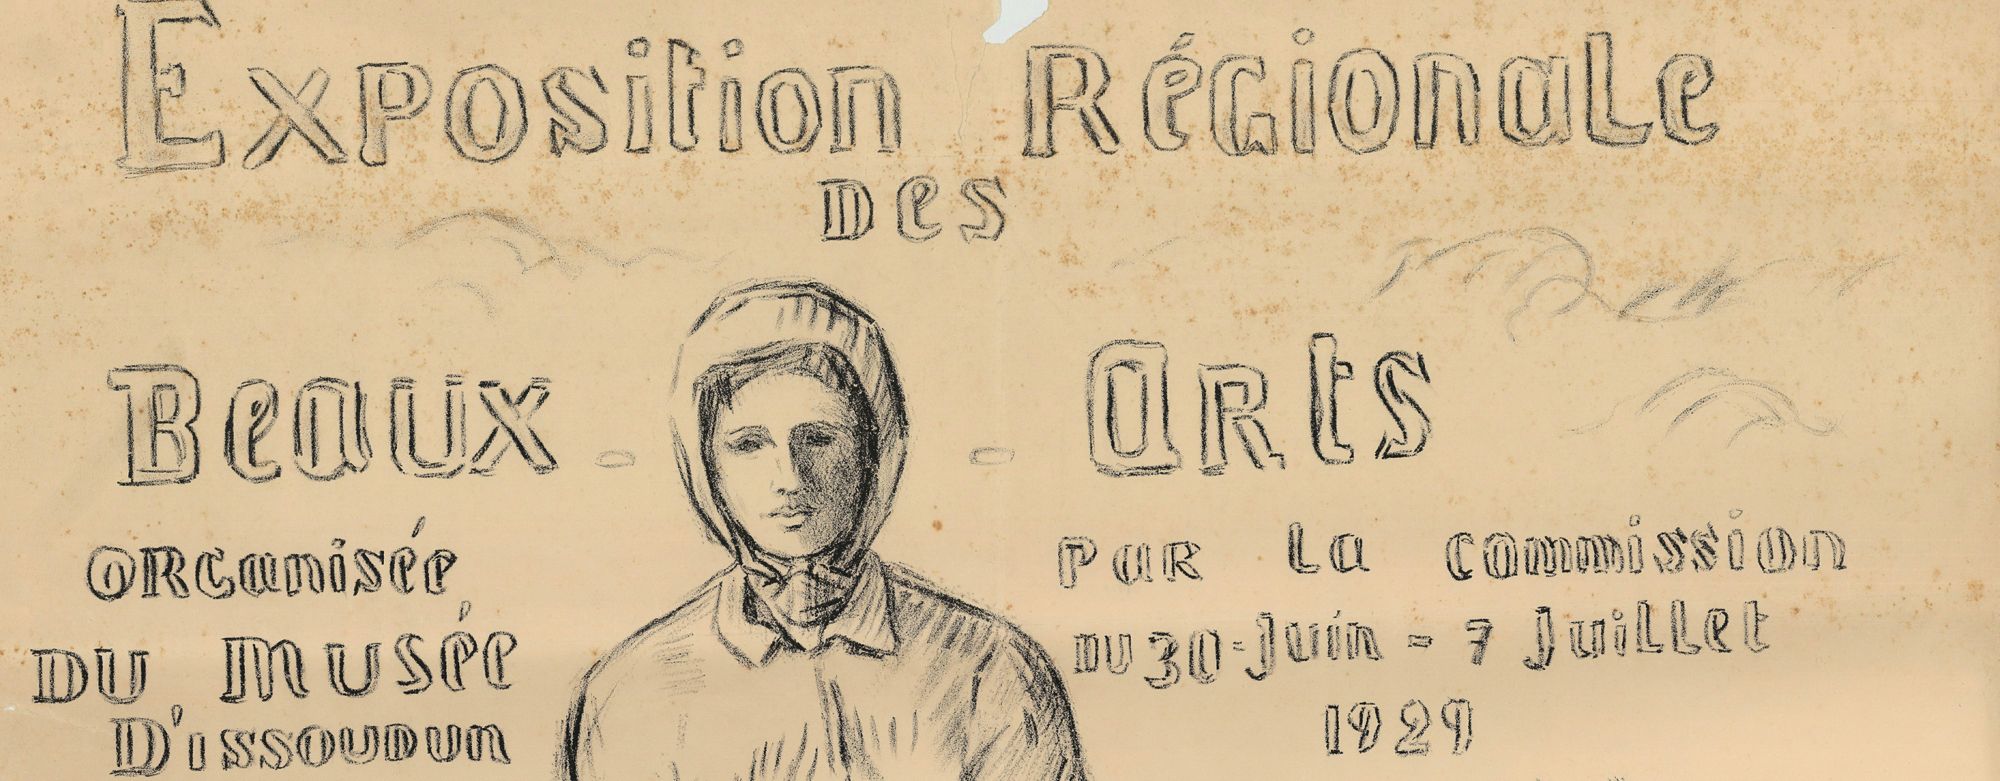 Exposition Régionale
Des
Beaux - Arts
Organisée par la commission
DU Musée DU 30 = Juin = 7 Juillet
D'issoudun 1929